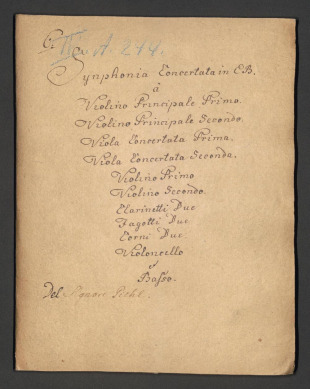 II A. 244.
Synphonia Concertata in E B.
à
Violino Principale Primo.
Violino Principale Secondo.
Viola Concertata Prima.
Viola Concertata Seconda.
Violino Primo
Violino Secondo.
Clarinetti Due
Fagotti Due
Corni Due
Violoncello
et
Basso.
Del Signore Pichl.